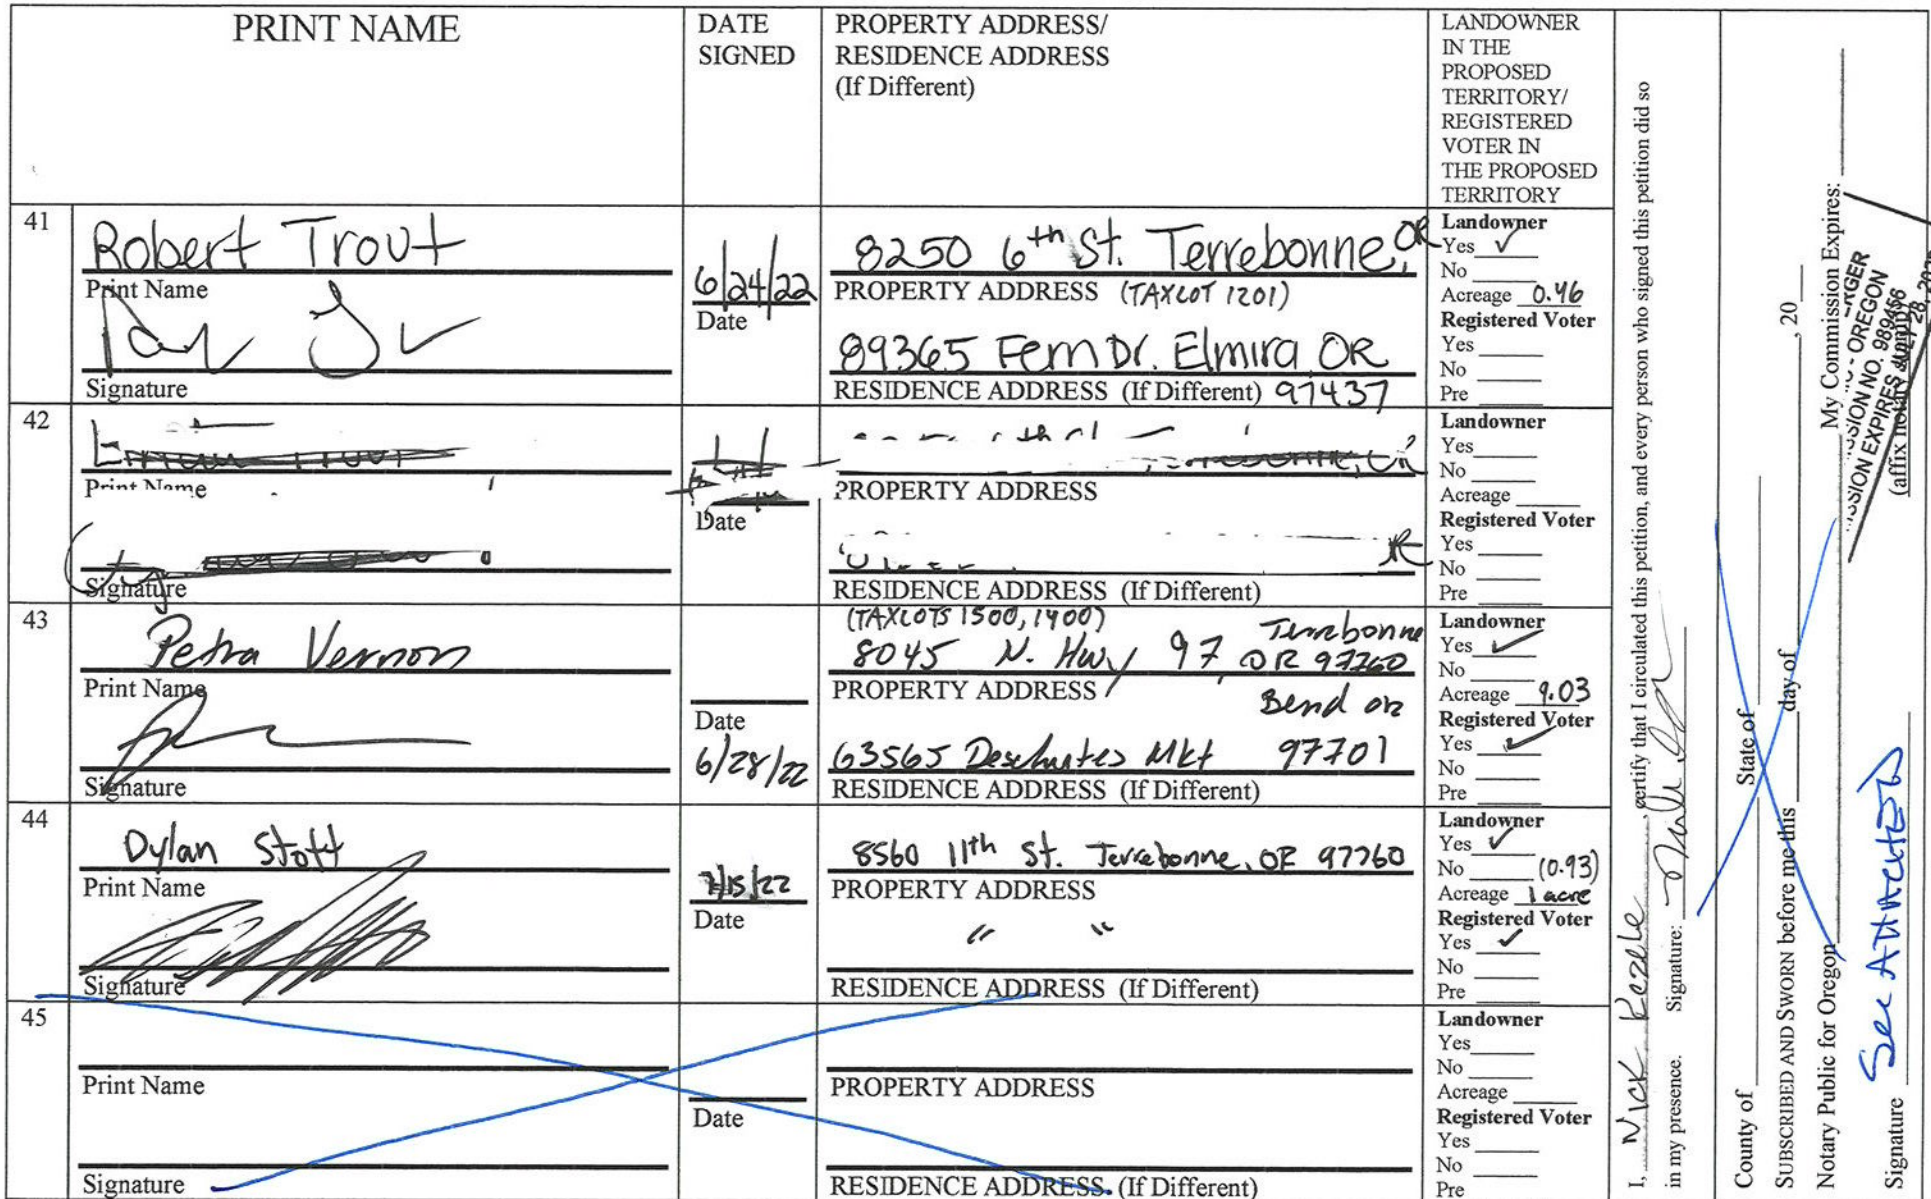 PRINT NAME
DATE
SIGNED
PROPERTY ADDRESS/
RESIDENCE ADDRESS
(If Different)
LANDOWNER
IN THE
PROPOSED
TERRITORY/
REGISTERED
VOTER IN
THE PROPOSED
TERRITORY
41
Robert Trout
Print Name
Signature
6/24/22
Date
8250 6th St. Terrebonne, OR
PROPERTY ADDRESS (TAXLOT 1201)
89365 Fern Dr. Elmira OR
RESIDENCE ADDRESS (If Different) 97437
Landowner
Yes ✓
No
Acreage 0.46
Registered Voter
Yes
No
Pre
42
Print Name
Signature
Date
PROPERTY ADDRESS
RESIDENCE ADDRESS (If Different)
Landowner
Yes
No
Acreage
Registered Voter
Yes
No
Pre
43
Petra Vernon
Print Name
Signature
Date
6/28/22
(TAXLOTS 1500, 1400)
8045 N. Hwy 97 Terrebonne
OR 97760
PROPERTY ADDRESS
Bend OR
63565 Deschutes Mkt 97701
RESIDENCE ADDRESS (If Different)
Landowner
Yes ✓
No
Acreage 9.03
Registered Voter
Yes ✓
No
Pre
44
Dylan Stott
Print Name
Signature
7/15/22
Date
8560 11th St. Terrebonne, OR 97760
PROPERTY ADDRESS
" "
RESIDENCE ADDRESS (If Different)
Landowner
Yes ✓
No (0.93)
Acreage 1 acre
Registered Voter
Yes ✓
No
Pre
45
Print Name
Signature
Date
PROPERTY ADDRESS
RESIDENCE ADDRESS (If Different)
Landowner
Yes
No
Acreage
Registered Voter
Yes
No
Pre
I, Nick Kezele, certify that I circulated this petition, and every person who signed this petition did so
in my presence. Signature:
County of State of
SUBSCRIBED AND SWORN before me this day of , 20
Notary Public for Oregon My Commission Expires:
Signature See Attached (affix notary stamp)
- OREGON
SSION NO. 989456
SSION EXPIRES 28, 2023